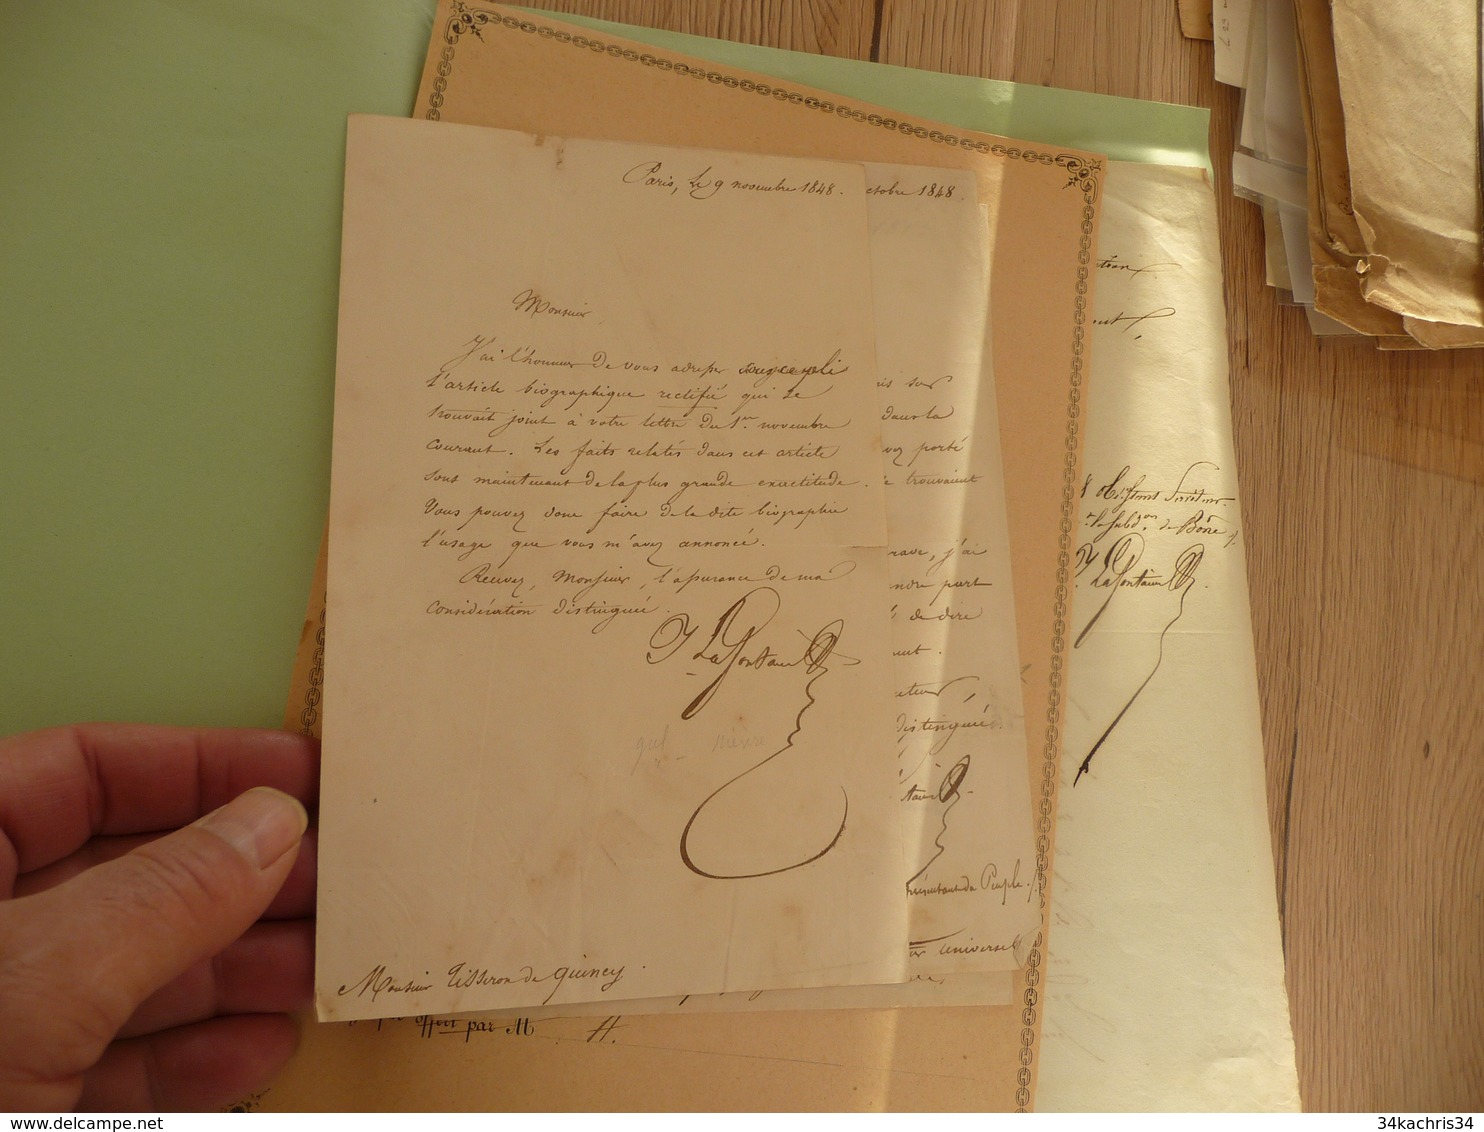 Paris, Le 9 novembre 1848.
Monsieur
J'ai l'honneur de vous adresser sous ce pli
l'article biographique rectifié qui se
trouvait joint à votre lettre du 1er novembre
courant. Les faits relatés dans cet article
sont maintenant de la plus grande exactitude.
Vous pouvez donc faire de la dite biographie
l'usage que vous m'avez annoncé.
Recevez, Monsieur, l'assurance de ma
considération distinguée.
LaFontaine
Monsieur Tisseron de Quincy.
ctobre 1848
sur
dans la
vez porté
trouvaient
rave, j'ai
ndre part
de dire
distinguée.
du Peuple.
Universel
offert par M
H.
de Bône
LaFontaine
34kachris34